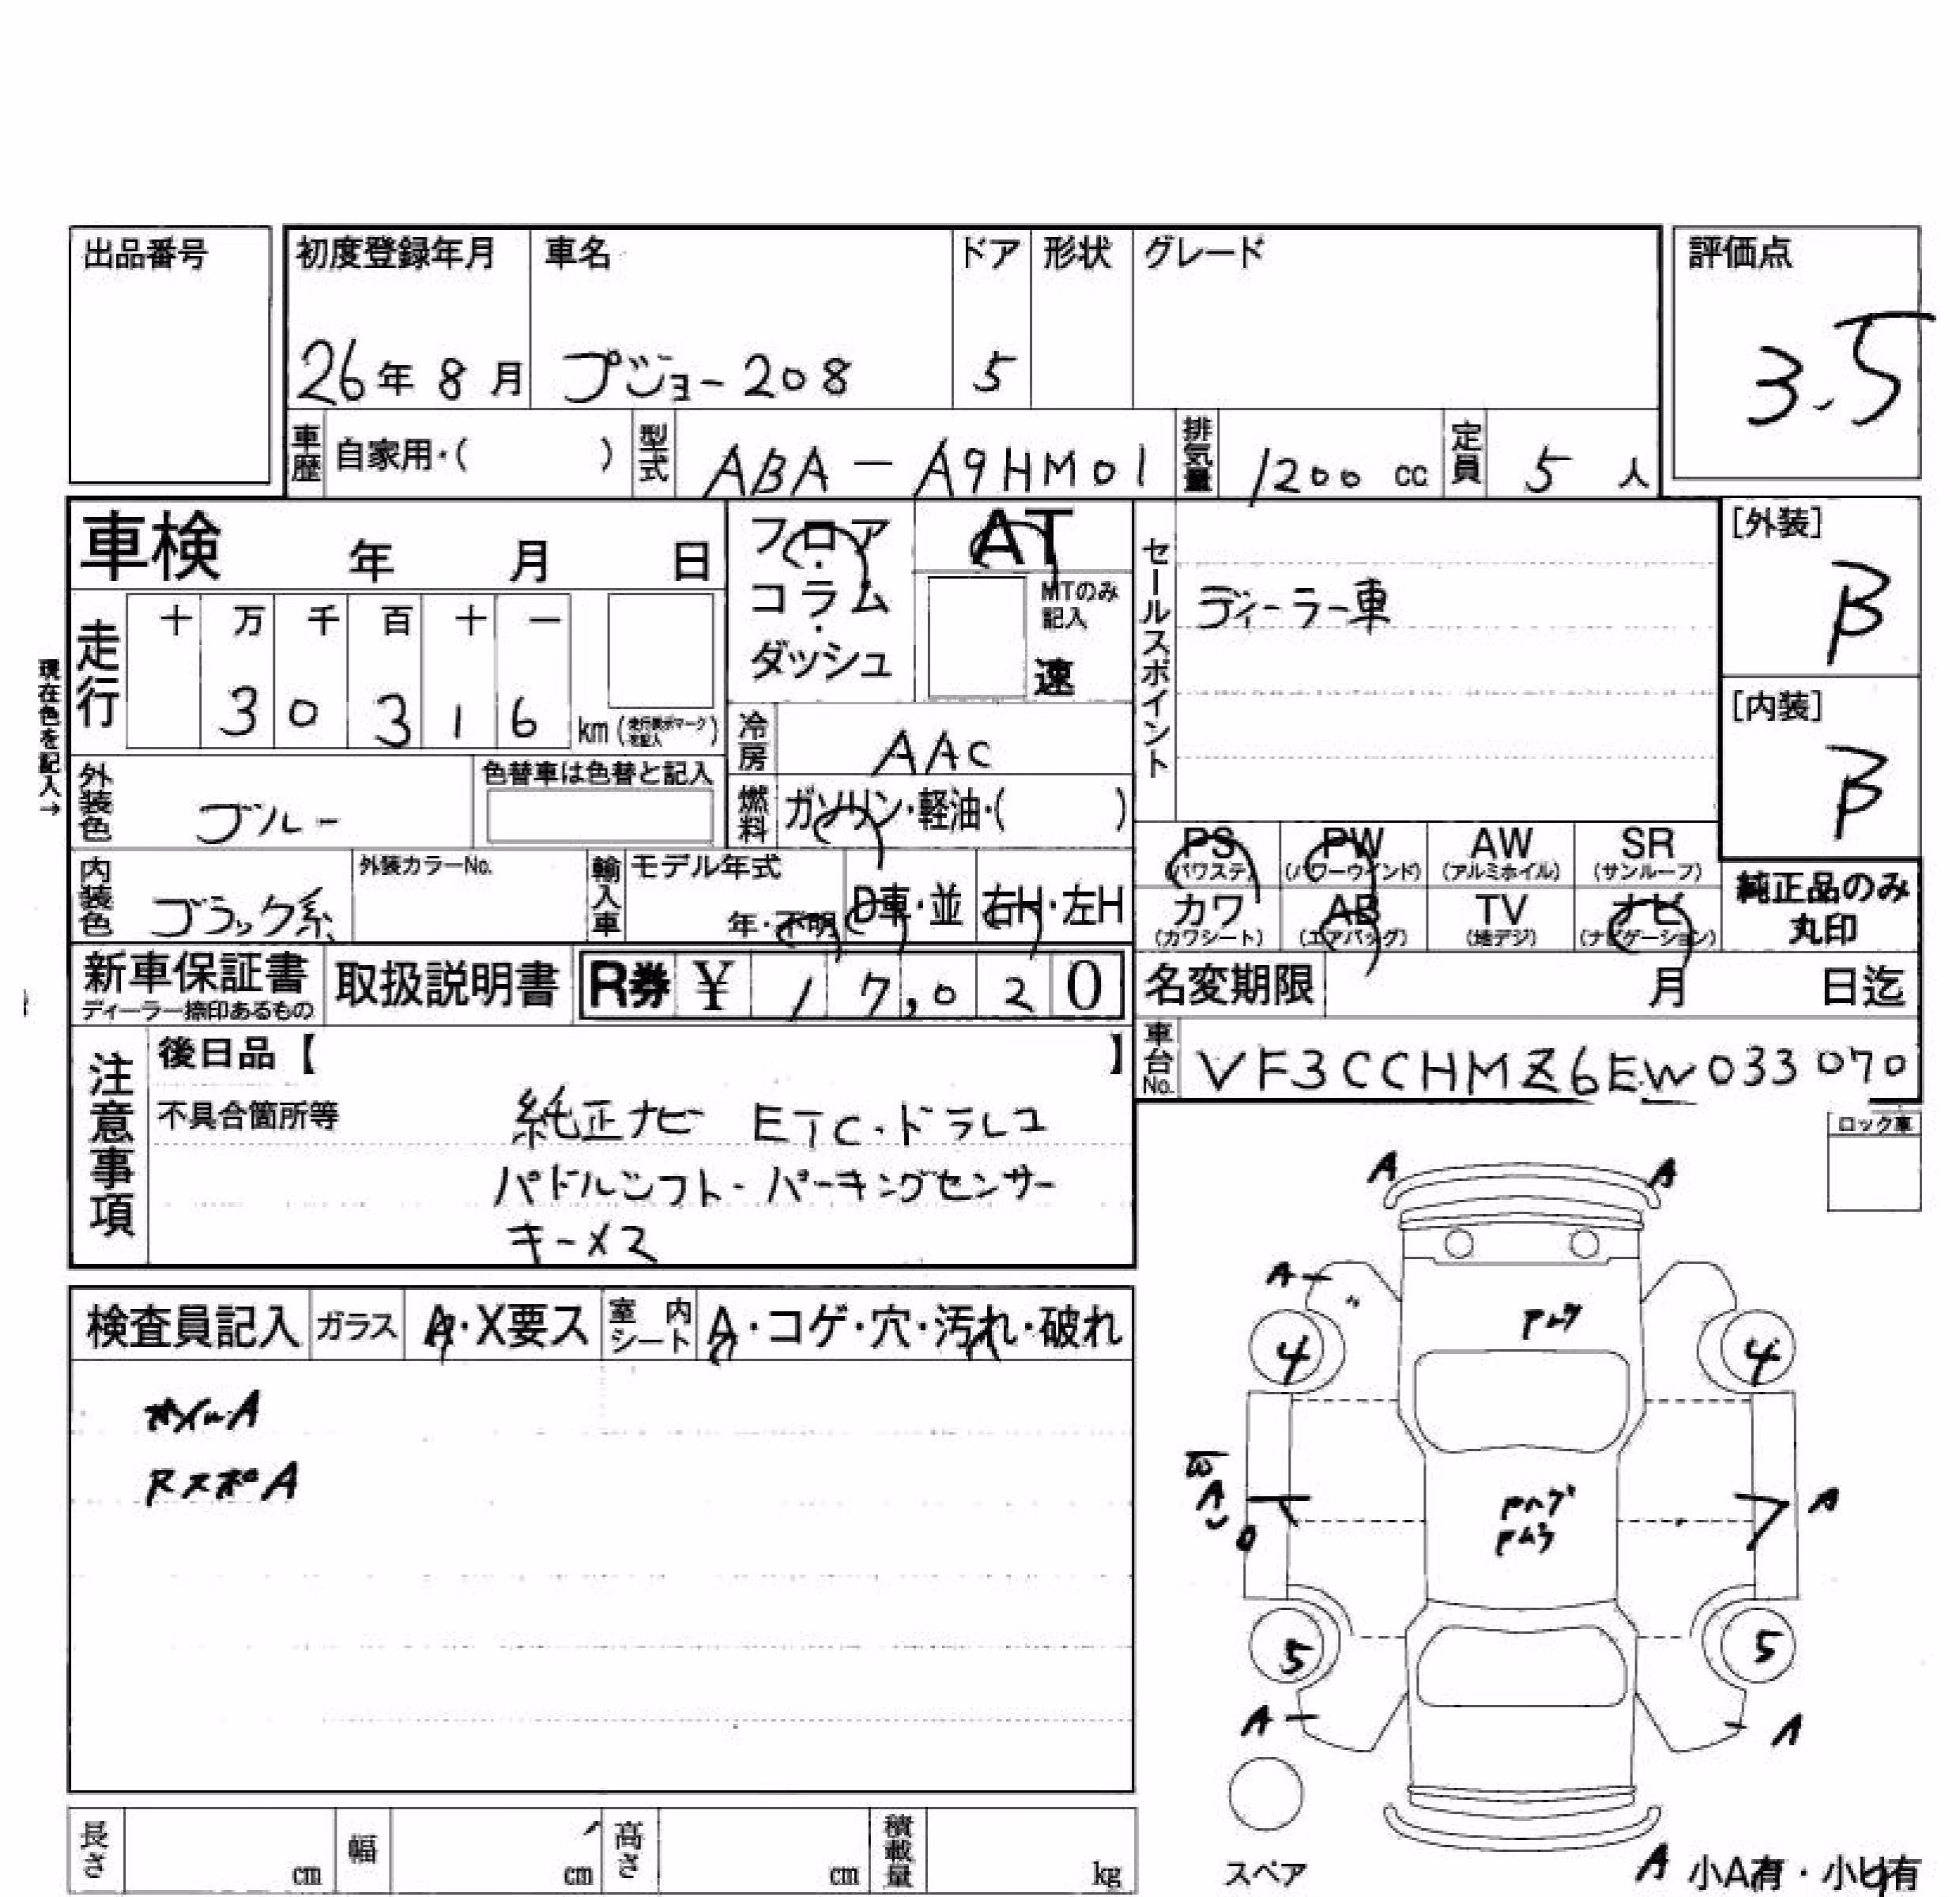 出品番号
初度登録年月 車名 ドア 形状 グレード 評価点
26年 8月 プジョー208 5 3.5
車歴 自家用・( ) 型式 ABA-A9HM01 排気量 1200 cc 定員 5 人
車検 年 月 日
フロア・コラム・ダッシュ AT
MTのみ記入 速
セールスポイント
ディーラー車
[外装] B
[内装] B
現在色を記入→
走行 十 万 千 百 十 一
3 0 3 1 6 km
冷房 AAC
外装色 ブルー 色替車は色替と記入
燃料 ガソリン・軽油・( )
PS (パワステ) PW (パワーウインド) AW (アルミホイル) SR (サンルーフ)
カワ (カワシート) AB (エアバッグ) TV (地デジ) ナビ (ナビゲーション)
純正品のみ丸印
内装色 ブラック系 外装カラーNo. 輸入車 モデル年式 年・不明 D車・並 右H・左H
新車保証書 ディーラー捺印あるもの 取扱説明書 R券 ¥ 17,020
名変期限 月 日迄
車台No. VF3CCHMZ6EW033070
注意事項
後日品【 】
不具合箇所等 純正ナビ ETC・ドラレコ
パドルシフト・パーキングセンサー
キーX2
ロック車
検査員記入 ガラス A・X要ス 室内シート A・コゲ・穴・汚れ・破れ
オイルA
A A
A
4 4
A
A
5 5
A A
スペア
A 小A有・小U有
長さ cm 幅 cm 高さ cm 積載量 kg